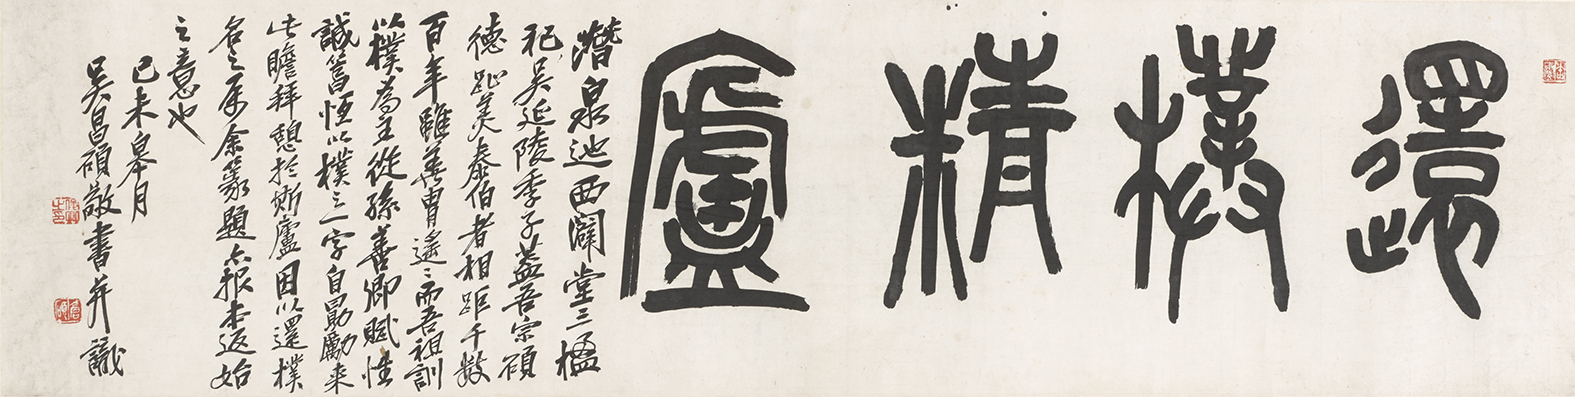 還樸精廬
潛泉池西闢堂三楹
祀吳延陵季子蓋吾宗碩
德趾美泰伯者相距千數
百年雖華胄遙遙而吾祖訓
以樸為主從孫善卿賦性
誠篤恆以樸之一字自勖勵來
此瞻拜憩於斯廬因以還樸
名之屬余篆題亦報本返始
之意也
己未皋月
吳昌碩敬書并識